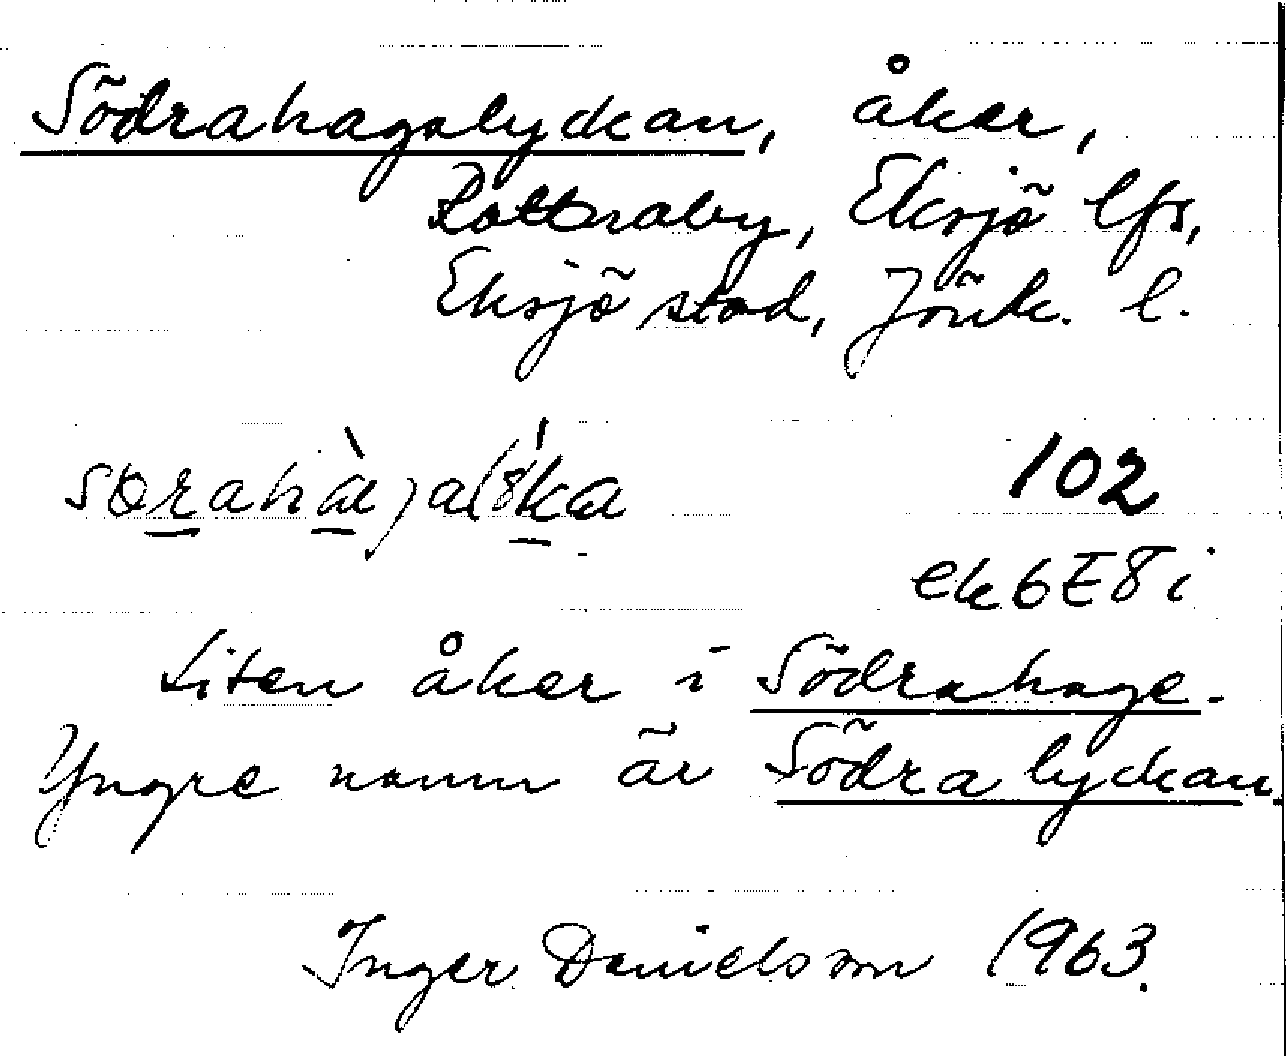 Södrahagslyckan, åker,
Rottnaby, Eksjö lfs,
Eksjö stad, Jönk. l.
102
ek 6E8i
Liten åker i Södrahage.
Yngre namn är Södra lyckan.
Inger Danielsson 1963.